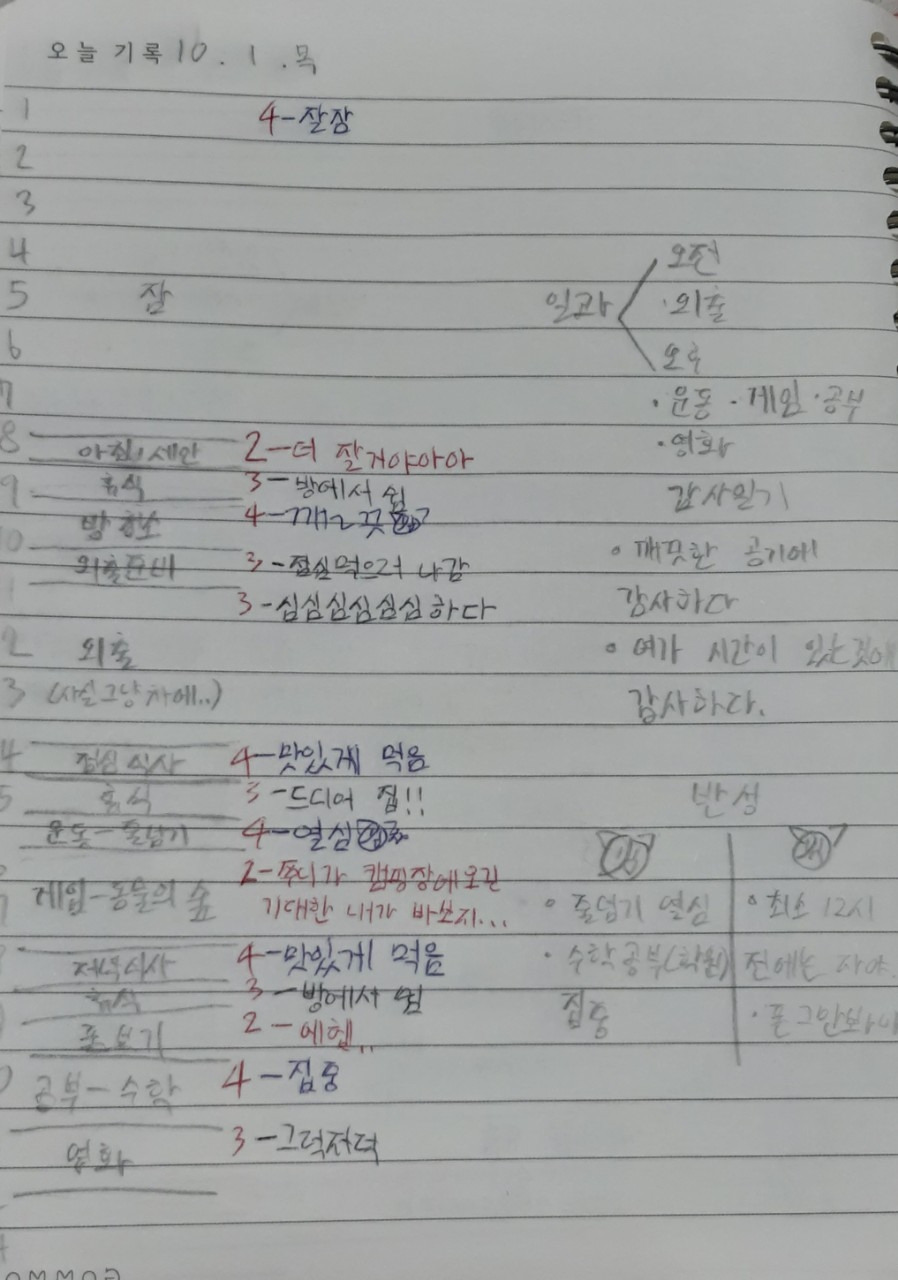 오늘 기록 10.1.목
1 4-잘잠
2
3
4 오전
5 잠 일과 ·외출
6 오후
7 ·운동 ·게임 ·공부
8 아침, 세안 2-더 잘거야아아 ·영화
9 휴식 3-방에서 쉼 감사일기
방 청소 4-깨끗
10 외출준비 3-점심먹으러 나감 ·깨끗한 공기에
3-심심심심심심하다 감사하다
2 외출 ·여가 시간이 있는것에
3 (사실 그냥 차에..) 감사하다.
4 점심 식사 4-맛있게 먹음
5 휴식 3-드디어 집!! 반성
운동-줄넘기 4-열심
게임-동물의 숲 2-쭈니가 캠핑장에오긴 ·줄넘기 열심 ·최소 12시
기대한 내가 바보지...
저녁식사 4-맛있게 먹음 ·수학공부(학원) 전에는 자야
휴식 3-방에서 쉼 집중 ·폰그만봐야
폰보기 2-에헴..
공부-수학 4-집중
영화 3-그럭저럭